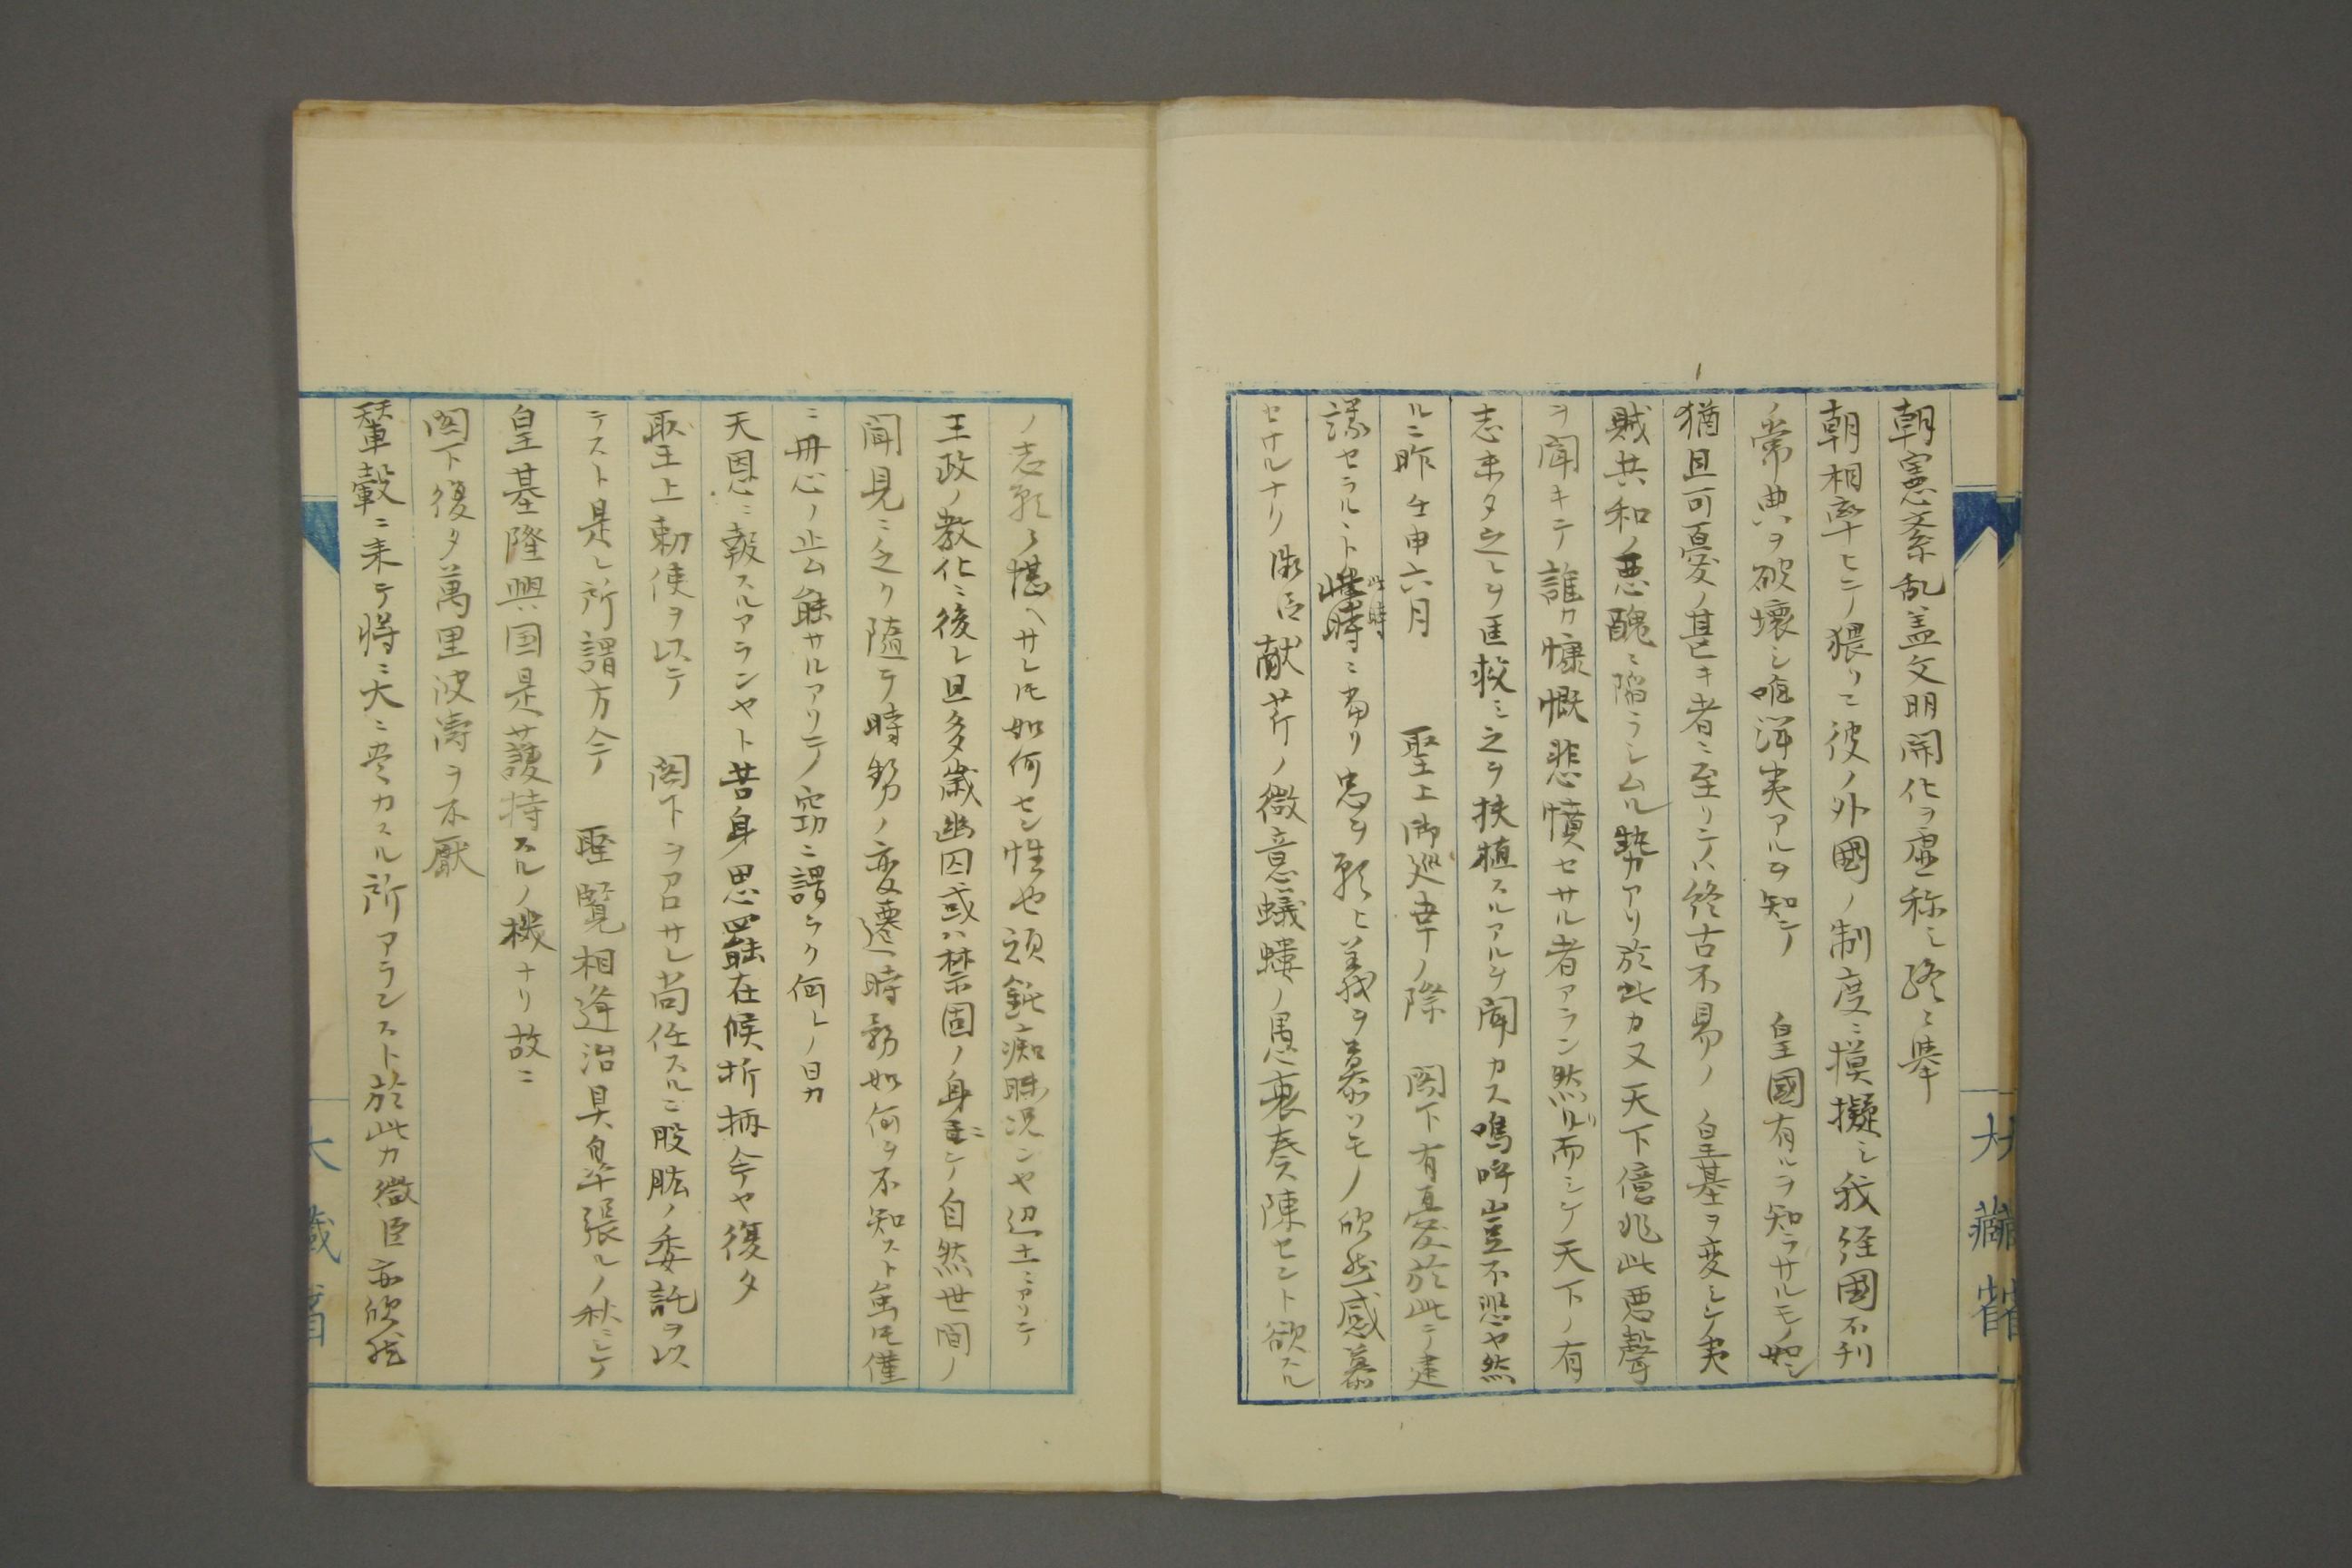 朝憲紊乱盖文明開化ヲ虚称シ終ニ挙
朝相率ヒテ猥リニ彼ノ外國ノ制度ニ摸擬シ我経國不刊
ノ常典ヲ破壊シ唯洋夷アルヲ知テ　皇國有ルヲ知ラサルモノ如シ
猶且可憂ノ甚キ者ニ至リテハ終古不易ノ　皇基ヲ変シテ夷
賊共和ノ悪醜ニ陥ラシムル勢アリ於此カ又天下億兆此悪聲
ヲ聞キテ誰カ慷慨悲憤セサル者アラン然ルニ而シテ天下ノ有
志未タ之レヲ匡救シ之ヲ扶植スルアルヲ聞カス嗚呼豈不悲ヤ然
ルニ昨壬申六月　聖上御巡幸ノ際　閣下有憂於此テ建
議セラルト此時ニ当リ忠ヲ願ヒ義ヲ慕フモノ欣然感慕
セサルナリ微臣献芹ノ微意蟻螻ノ愚衷奏陳セント欲スル
大藏省
ノ志願ニ堪ヘサレ𪜈如何セン性也頑鈍痴𫆀况ンヤ辺土ニアリテ
王政ノ教化ニ後レ且多歳幽囚或ハ禁固ノ身ニシテ自然世間ノ
聞見ニ乏ク隨テ時勢ノ変遷時務如何ヲ不知スト雖𪜈僅
ニ丹心ノ止ム能サルアリテ窃ニ謂ラク何レノ日カ
天恩ニ報スルアランヤト苦身思罷在候折柄今ヤ復タ
聖上勅使ヲ以テ　閣下ヲ召サレ尚任スルニ股肱ノ委託ヲ以
テスト是レ所謂方今　聖賢相逢治具皋張ルノ秋ニシテ
皇基隆興国是護持スルノ機ナリ故ニ
閣下復タ萬里波濤ヲ不厭
輦轂ニ来テ将ニ大ニ尽カスル所アランスト於此カ微臣亦欣然
大藏省